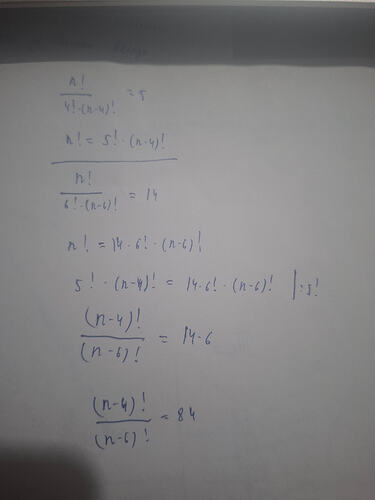 n!/(4!·(n-4)!) = 5
n! = 5!·(n-4)!
n!/(6!·(n-6)!) = 14
n! = 14·6!·(n-6)!
5!·(n-4)! = 14·6!·(n-6)! |:5!
(n-4)!/(n-6)! = 14·6
(n-4)!/(n-6)! = 84